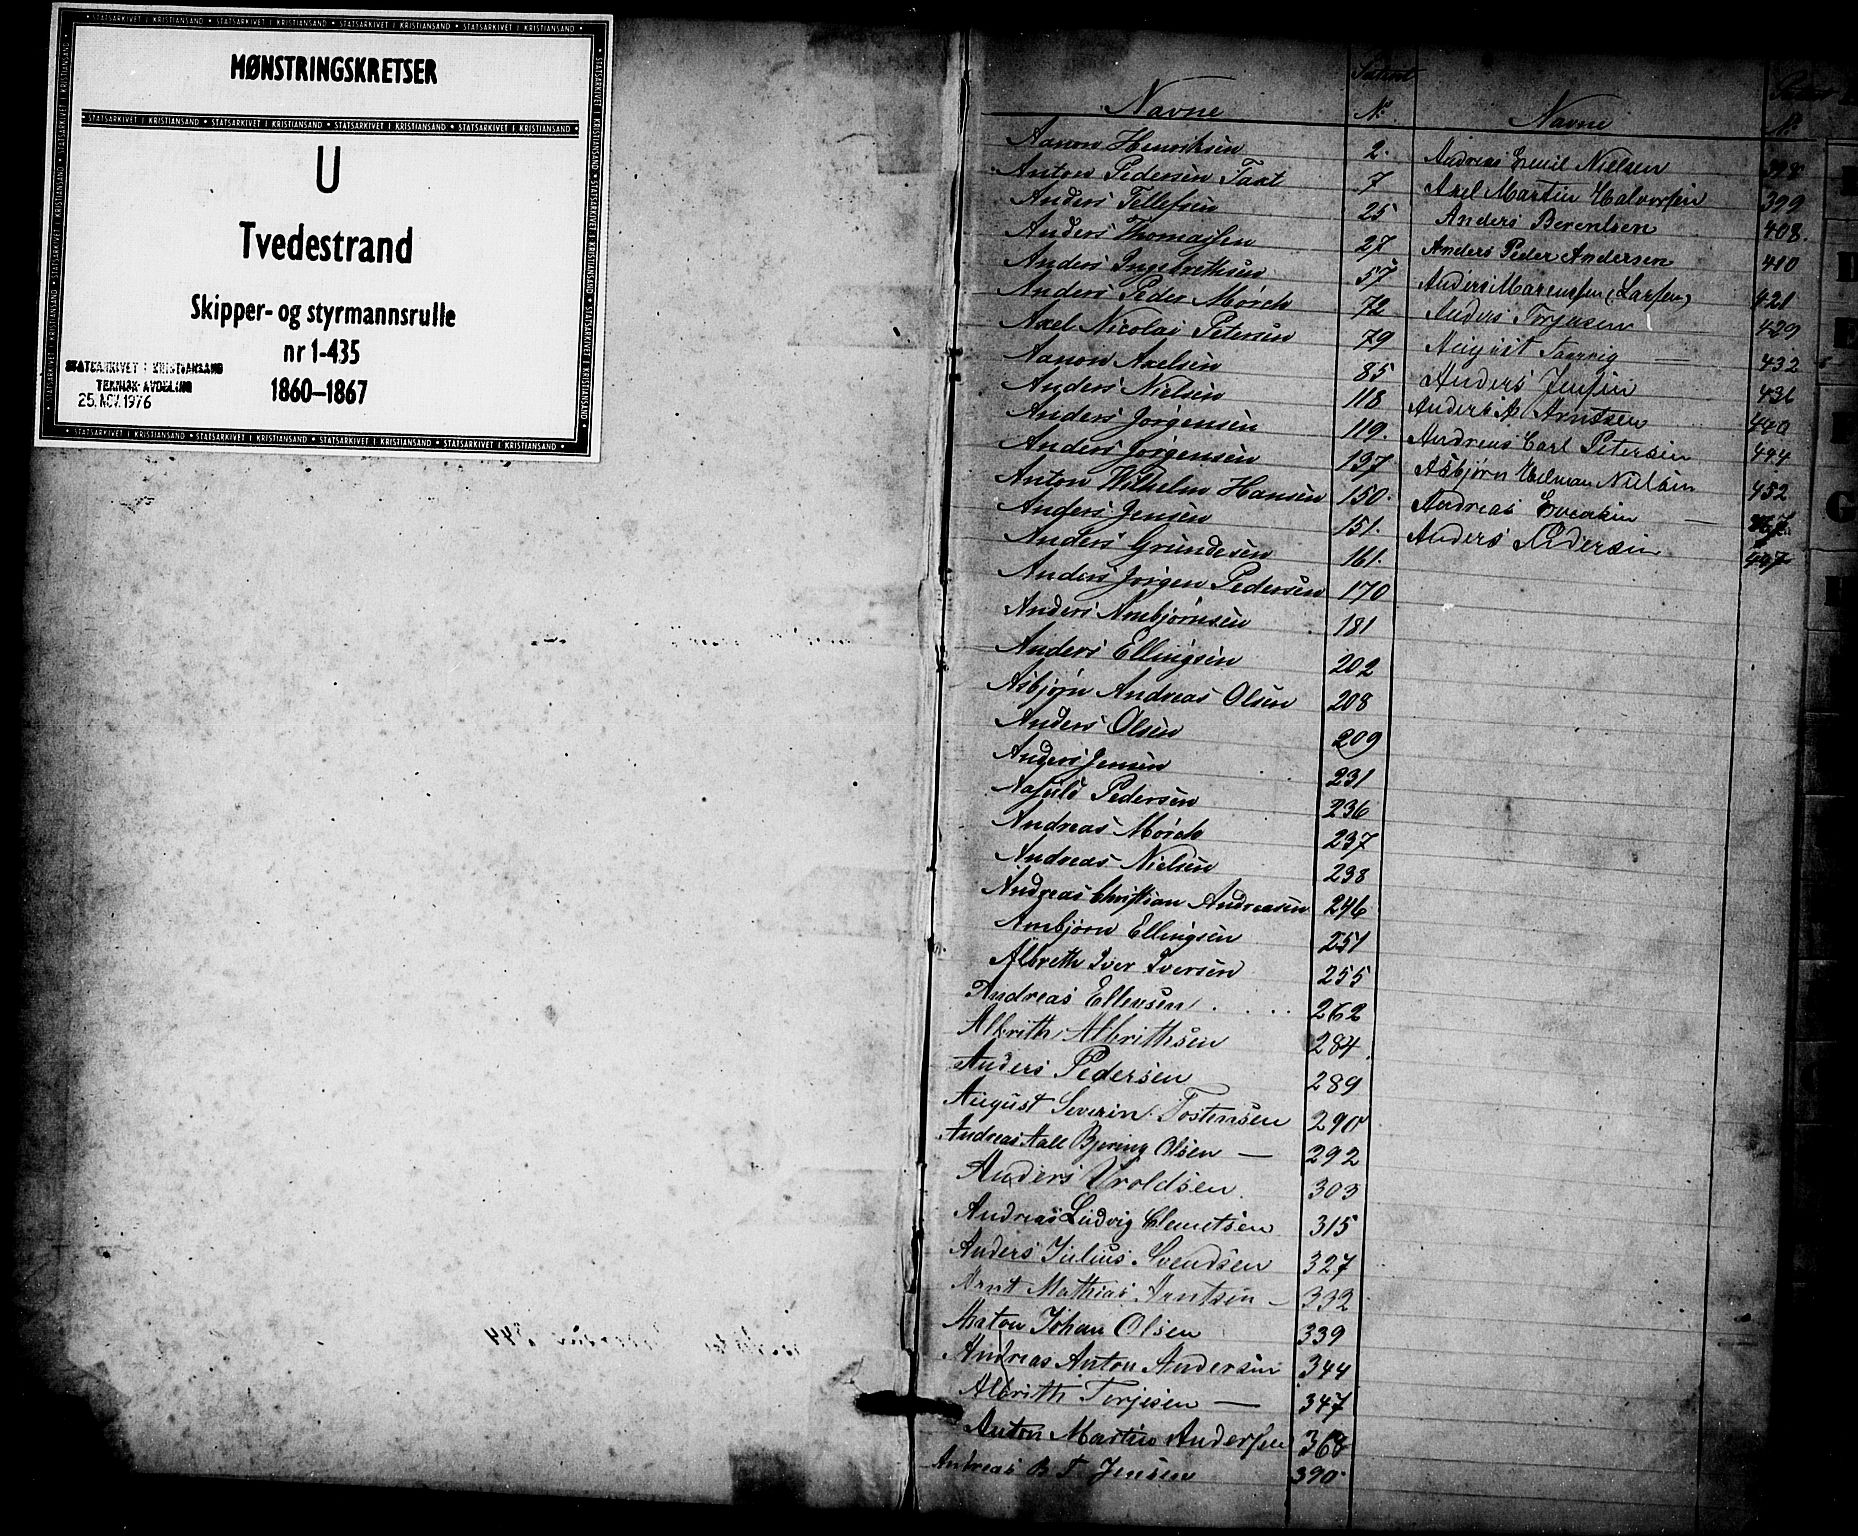 MØNSTRINGSKRETSER
U
Tvedestrand
Skipper- og styrmannsrulle
nr 1-435
1860–1867
STATSARKIVET I KRISTIANSAND
TEKNISK AVDELING
25. NOV. 1976
Navne No
Aanon Henriksen 2.
Anton Pedersen Taxt 7
Anders Tellefsen 25
Anders Thomassen 27
Anders Ingebrethsen 57
Anders Peder Mørch 72
Axel Nicolai Petersen 79
Aanon Axelsen 85
Anders Nielsen 118
Anders Jørgensen 119.
Anders Jørgensen 137
Anton Wilhelm Hansen 150.
Anders Jensen 151.
Anders Grundesen 161.
Anders Jørgen Pedersen 170
Anders Anebjørnsen 181
Anders Ellingsen 202
Asbjørn Andreas Olsen 208
Anders Olsen 209
Anders Jensen 231
Aasuld Pedersen 236
Andreas Mørch 237
Andreas Nielsen 238
Andreas Christian Andreasen 246
Anebjørn Ellingsen 251
Albreth Iver Iversen 255
Andreas Ellevsen 262
Albrith Albrithsen 284
Anders Pedersen 289
August Severin Tostensen 290
Andreas Aall Bjering Olsen — 292
Anders Uroldsen 303
Andreas Ludvig Clemetsen 315
Anders Julius Svendsen 327
Arnt Mathias Arntsen 332
Anton Johan Olsen 339
Andreas Anton Andersen 344
Albrith Terjesen — 347
Anton Martin Andersen 368
Andreas B T Jensen 390
Navne No
Andreas Emil Nielsen 398
Axel Martin Halvorsen 399
Anders Berentsen 408.
Anders Peder Andersen 410
Anders Marenssen (Larsen) 421
Anders Torjusen 429
August Taxvig — 432
Anders Jensen 436
Anders A Arntsen 440
Andreas Carl Petersen 444
Asbjørn Helman Nielsen 452
Andreas Evensen —
Anders Pedersen 467